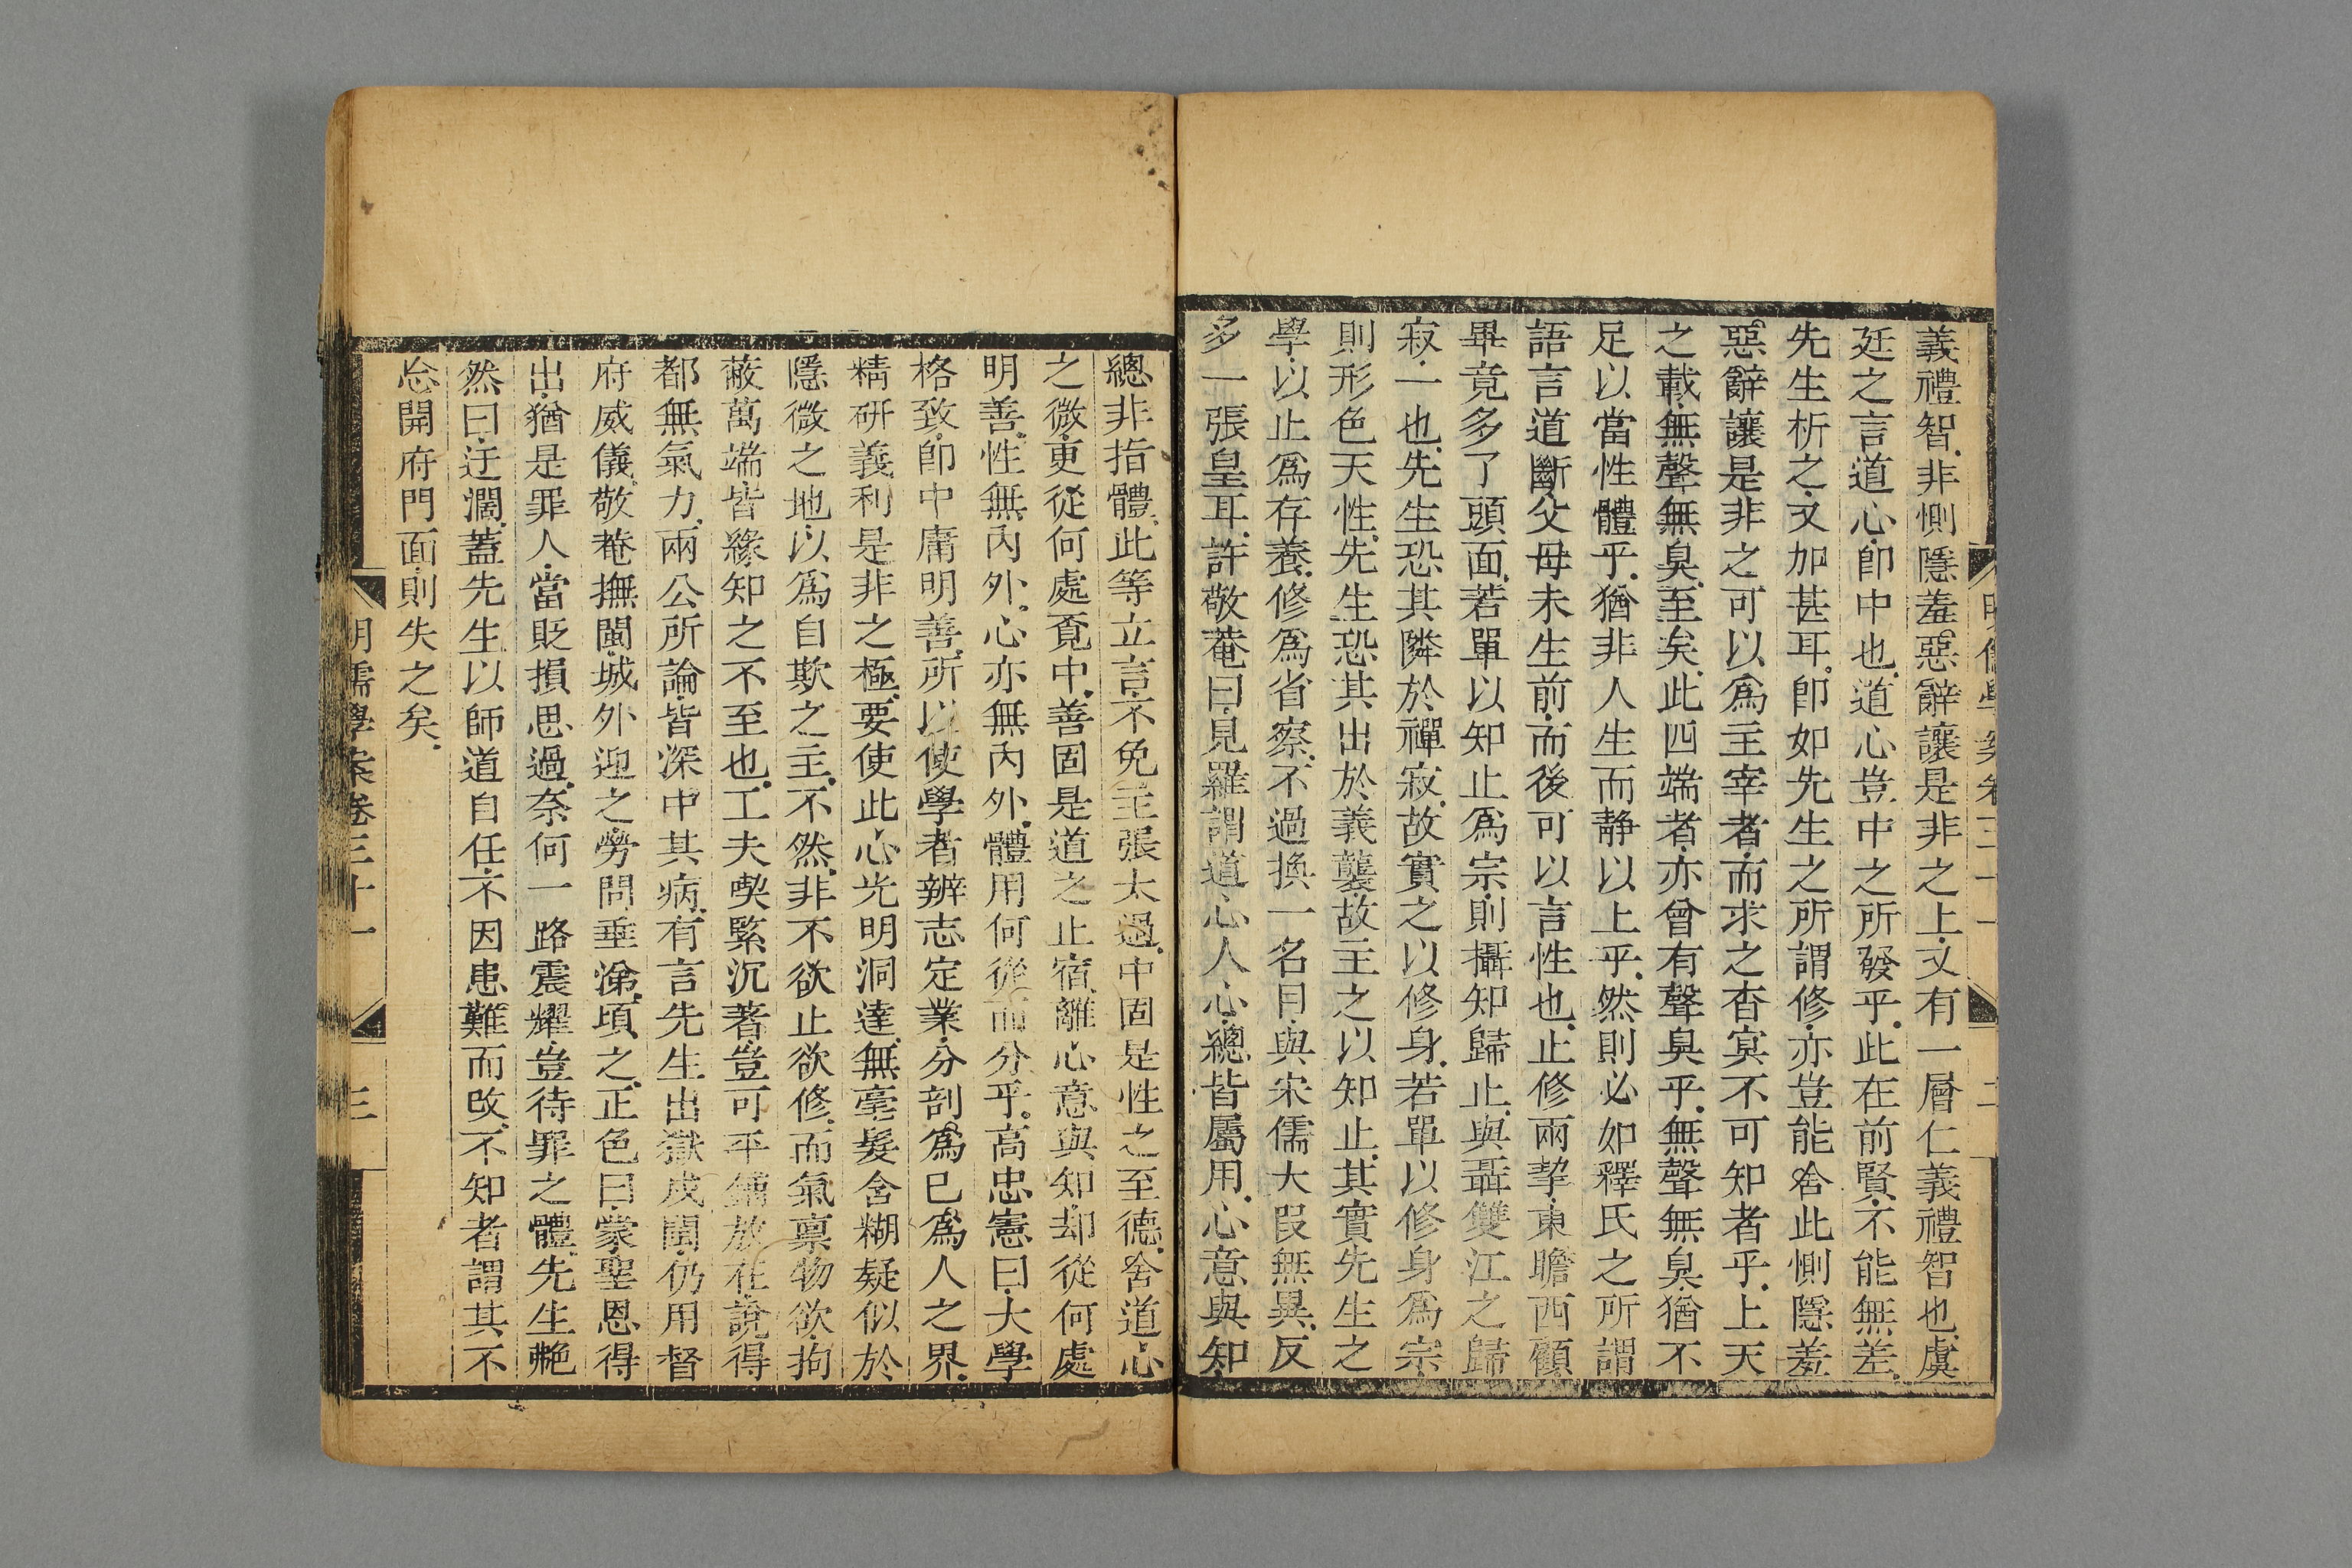 義禮智非惻隱羞惡辭讓是非之上又有一層仁義禮智也虞
廷之言道心卽中也道心豈中之所發乎此在前賢不能無差
先生析之又加甚耳卽如先生之所謂修亦豈能舍此惻隱羞
惡辭讓是非之可以爲主宰者而求之杳冥不可知者乎上天
之載無聲無臭至矣此四端者亦曾有聲臭乎無聲無臭猶不
足以當性體乎猶非人生而靜以上乎然則必如釋氏之所謂
語言道斷父母未生前而後可以言性也止修兩挈東瞻西顧
畢竟多了頭面若單以知止爲宗則攝知歸止與聶雙江之歸
寂一也先生恐其隣於禪寂故實之以修身若單以修身爲宗
則形色天性先生恐其出於義襲故主之以知止其實先生之
學以止爲存養修爲省察不過換一名目與宋儒大叚無異反
多一張皇耳許敬菴曰見羅謂道心人心總皆屬用心意與知
總非指體此等立言不免主張太過中固是性之至德舍道心
之微更從何處覔中善固是道之止宿離心意與知却從何處
明善性無內外心亦無內外體用何從而分乎高忠憲曰大學
格致卽中庸明善所以使學者辨志定業分剖爲已爲人之界
精研義利是非之極要使此心光明洞達無毫髮含糊疑似於
隱微之地以爲自欺之主不然非不欲止欲修而氣稟物欲拘
蔽萬端皆緣知之不至也工夫喫緊沉著豈可平鋪放在說得
都無氣力兩公所論皆深中其病有言先生出獄戍閩仍用督
府威儀敬菴撫閩城外迎之勞問垂涕頃之正色曰蒙聖恩得
出猶是罪人當貶損思過奈何一路震耀豈待罪之體先生艴
然曰迂濶蓋先生以師道自任不因患難而改不知者謂其不
忘開府門面則失之矣
明儒學案卷三十一
三